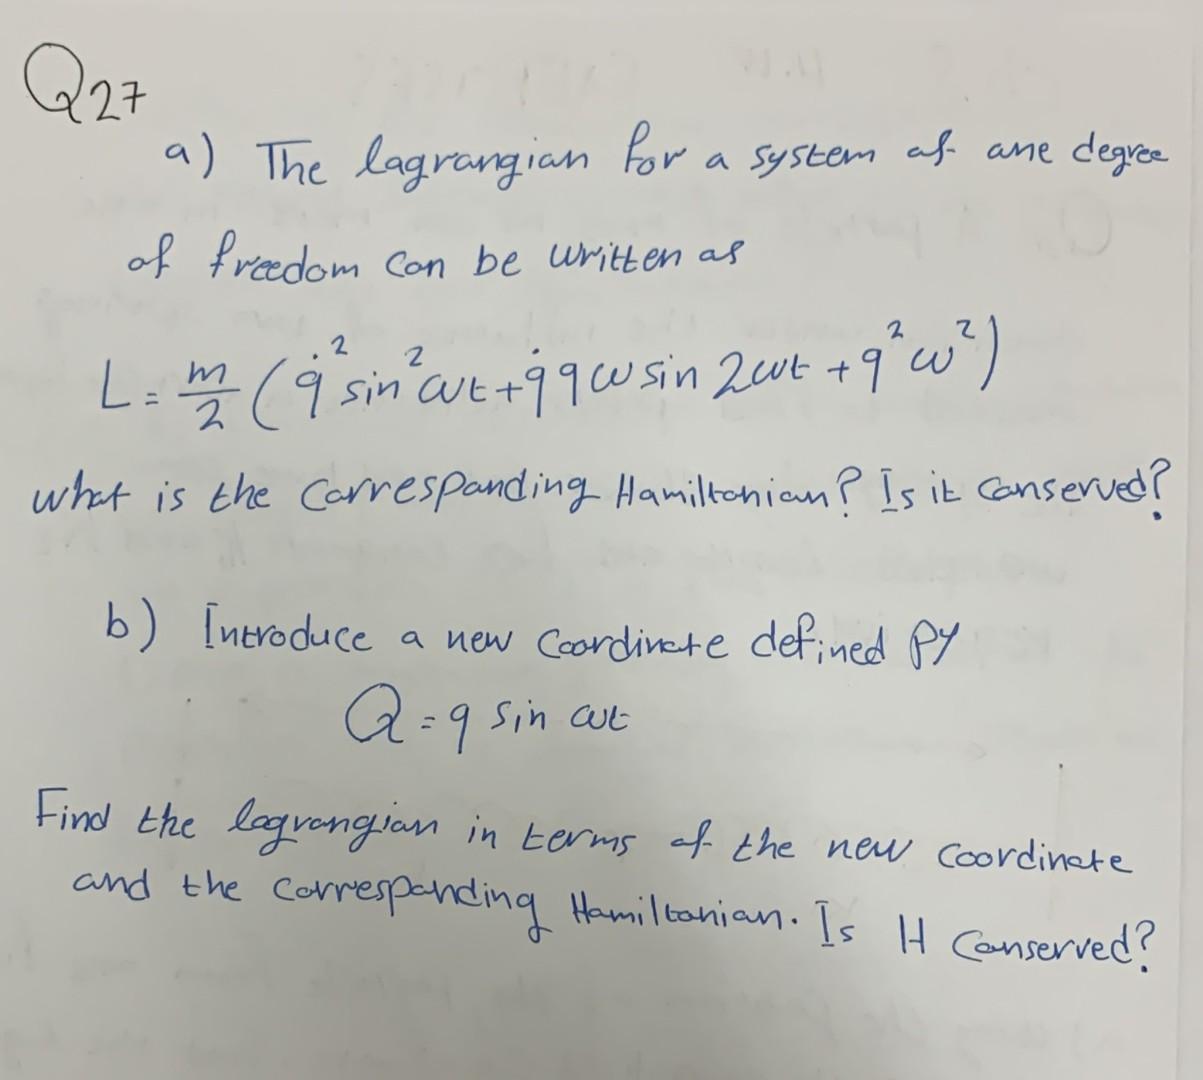 Q27
a) The lagrangian for a system of one degree
of freedom can be written as
L = m/2 (q̇² sin² ωt + q̇ q ω sin 2ωt + q² ω²)
what is the Correspanding Hamiltonian? Is it Conserved?
b) Introduce a new Coordinate defined by
Q = q sin ωt
Find the lagrangian in terms of the new Coordinate
and the Correspanding Hamiltonian. Is H Conserved?